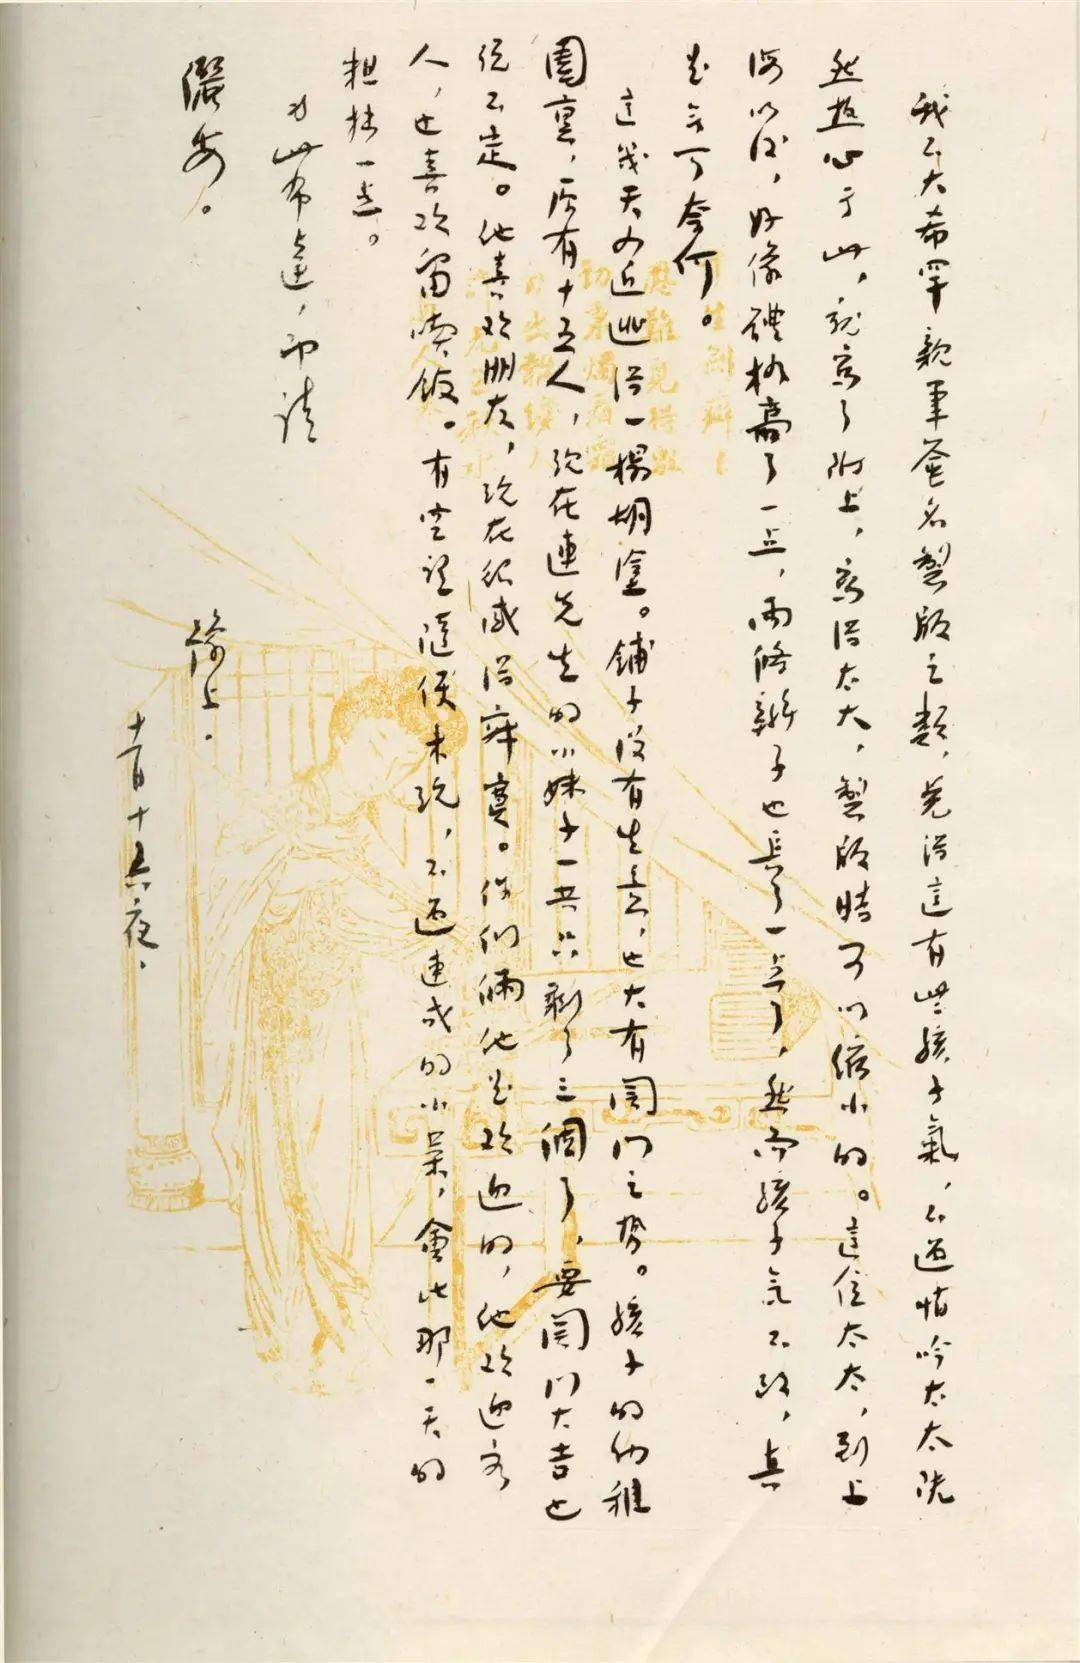 我不大希罕親筆簽名製版之類，覺得這有些孩子氣，不過悄吟太太既
然熱心于此，就寫了附上，寫得太大，製版時可以縮小的。這位太太，到上
海以後，好像體格高了一点，兩條辮子也長了一点了，然而孩子氣不改，真
是無可奈何。
這幾天四近逃得一榻胡塗。鋪子没有生意，也大有關門之勢。孩子的幼稚
園裏，原有十五人，現在連先生的小妹子一共只剩了三個了，要關門大吉也
説不定。他喜歡朋友，現在很感得寂寞。你們倆他是歡迎的，他歡迎客
人，也喜歡留喫飯。有空望隨便來玩，不過速成的小菜，會比那一天的
粗拙一点。
專此布達，即請
儷安。
豫上。
十一月十六夜。